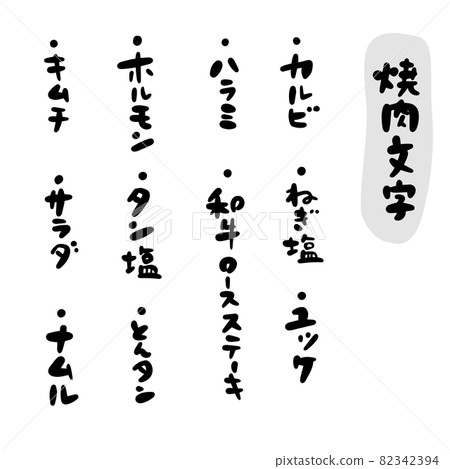 焼肉文字
・カルビ
・ねぎ塩
・ユッケ
・ハラミ
・和牛ロースステーキ
・ホルモン
・タン塩
・とんタン
・キムチ
・サラダ
・ナムル
PIXTA
82342394